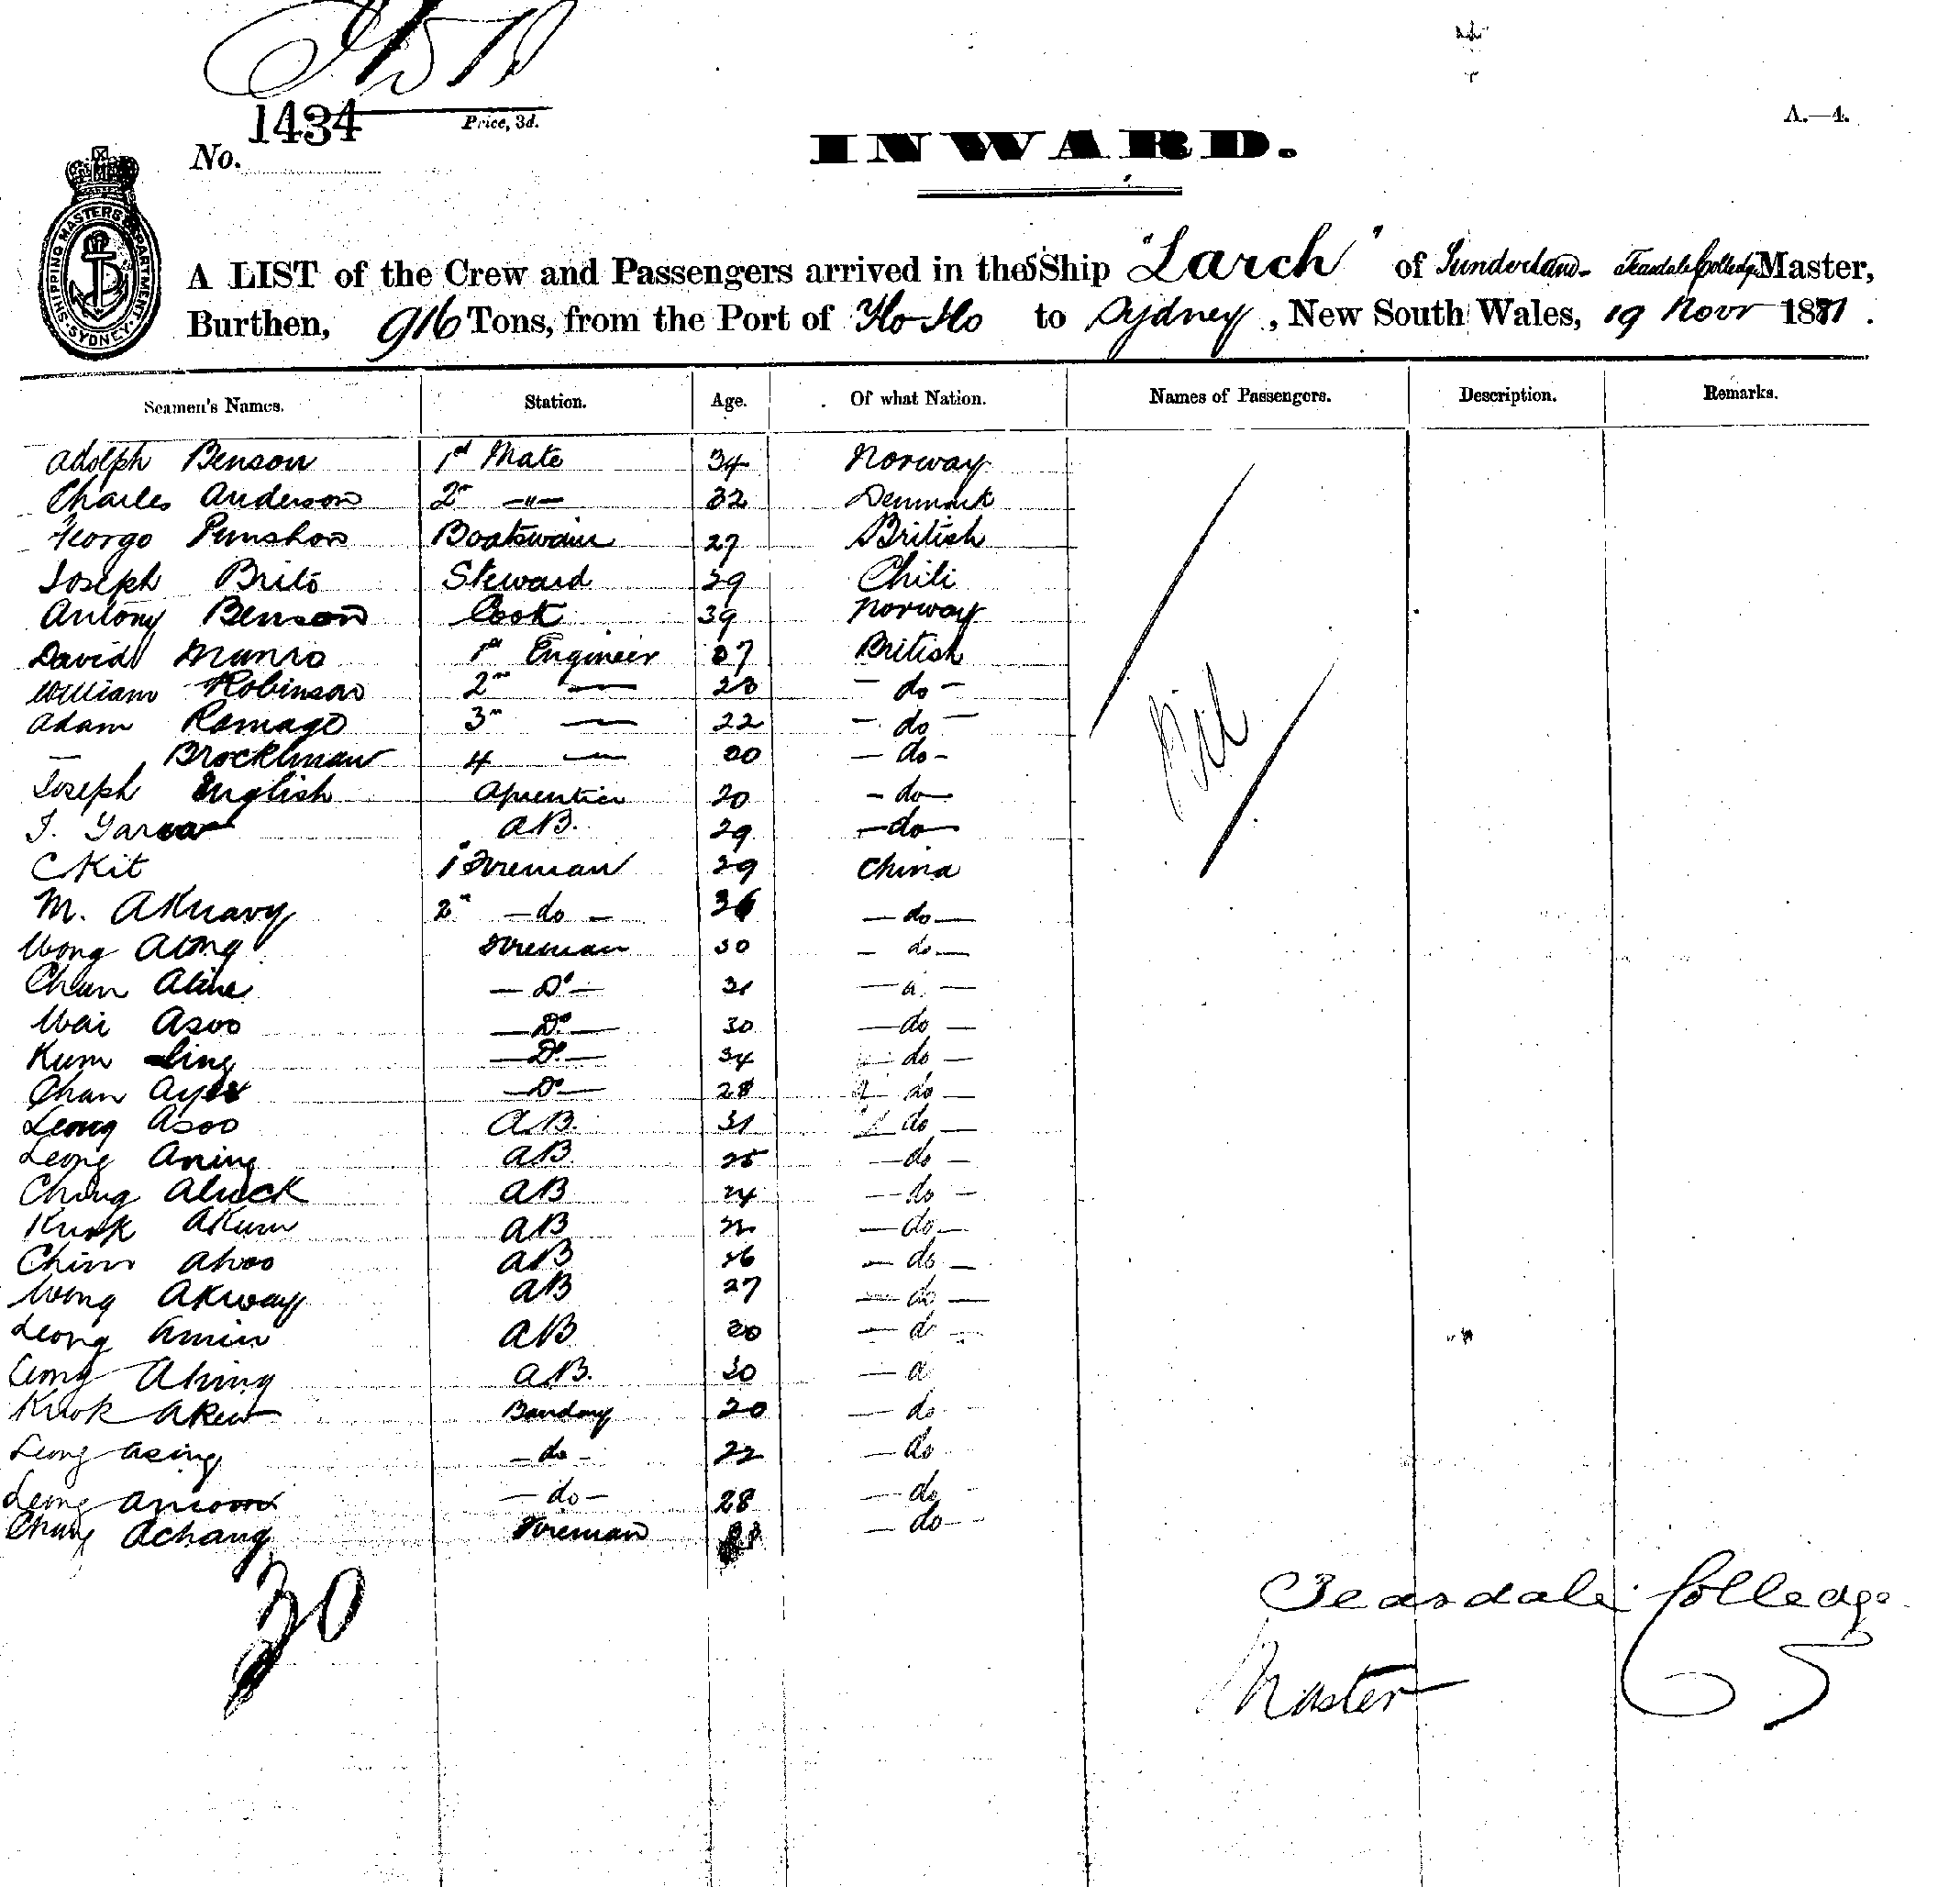 1434
Price, 3d.
No.
A.—4.
INWARD.
SHIPPING MASTERS DEPARTMENT. SYDNEY.
A LIST of the Crew and Passengers arrived in the SShip "Larch" of Sunderland Teasdale Colledge Master,
Burthen, 916 Tons, from the Port of Ilo Ilo to Sydney, New South Wales, 19 Novr 1881.
Seamen's Names. Station. Age. Of what Nation. Names of Passengers. Description. Remarks.
Adolph Benson 1st Mate 34 Norway
Charles Anderson 2n —"— 32 Denmark
George Punshon Boatswain 27 British
Joseph Brito Steward 29 Chili
Antony Benson Cook 39 Norway
David Munro 1st Engineer 27 British
William Robinson 2n — 23 - do -
Adam Ramage 3n — 22 - do -
— Brockliman 4 — 20 - do -
Joseph English Aprentice 20 - do -
J. A.B. 29 - do -
C Kit 1 Fireman 29 China
M. 2n - do - 36 - do -
Wong Fireman 30 - do -
Chan - Do - 31 - do -
Wai Asoo - Do - 30 - do -
Kum Ling - Do - 34 - do -
Chan - Do - 28 - do -
Leong Asoo A.B. 31 - do -
Leong Aning AB 25 - do -
Ching Aluck AB 24 - do -
Kwok Akum AB - do -
Chim Ahoo AB 26 - do -
Wong Akway AB 27 - do -
Leong Amin AB 20 - do -
Ahing A.B. 30 - d
Kwok Akew 20 - do -
Leong Asing - do - 22 - do
Leong - do - 28 - do -
Achang Fireman - do -
Nil
30
Teasdale Colledge
Master